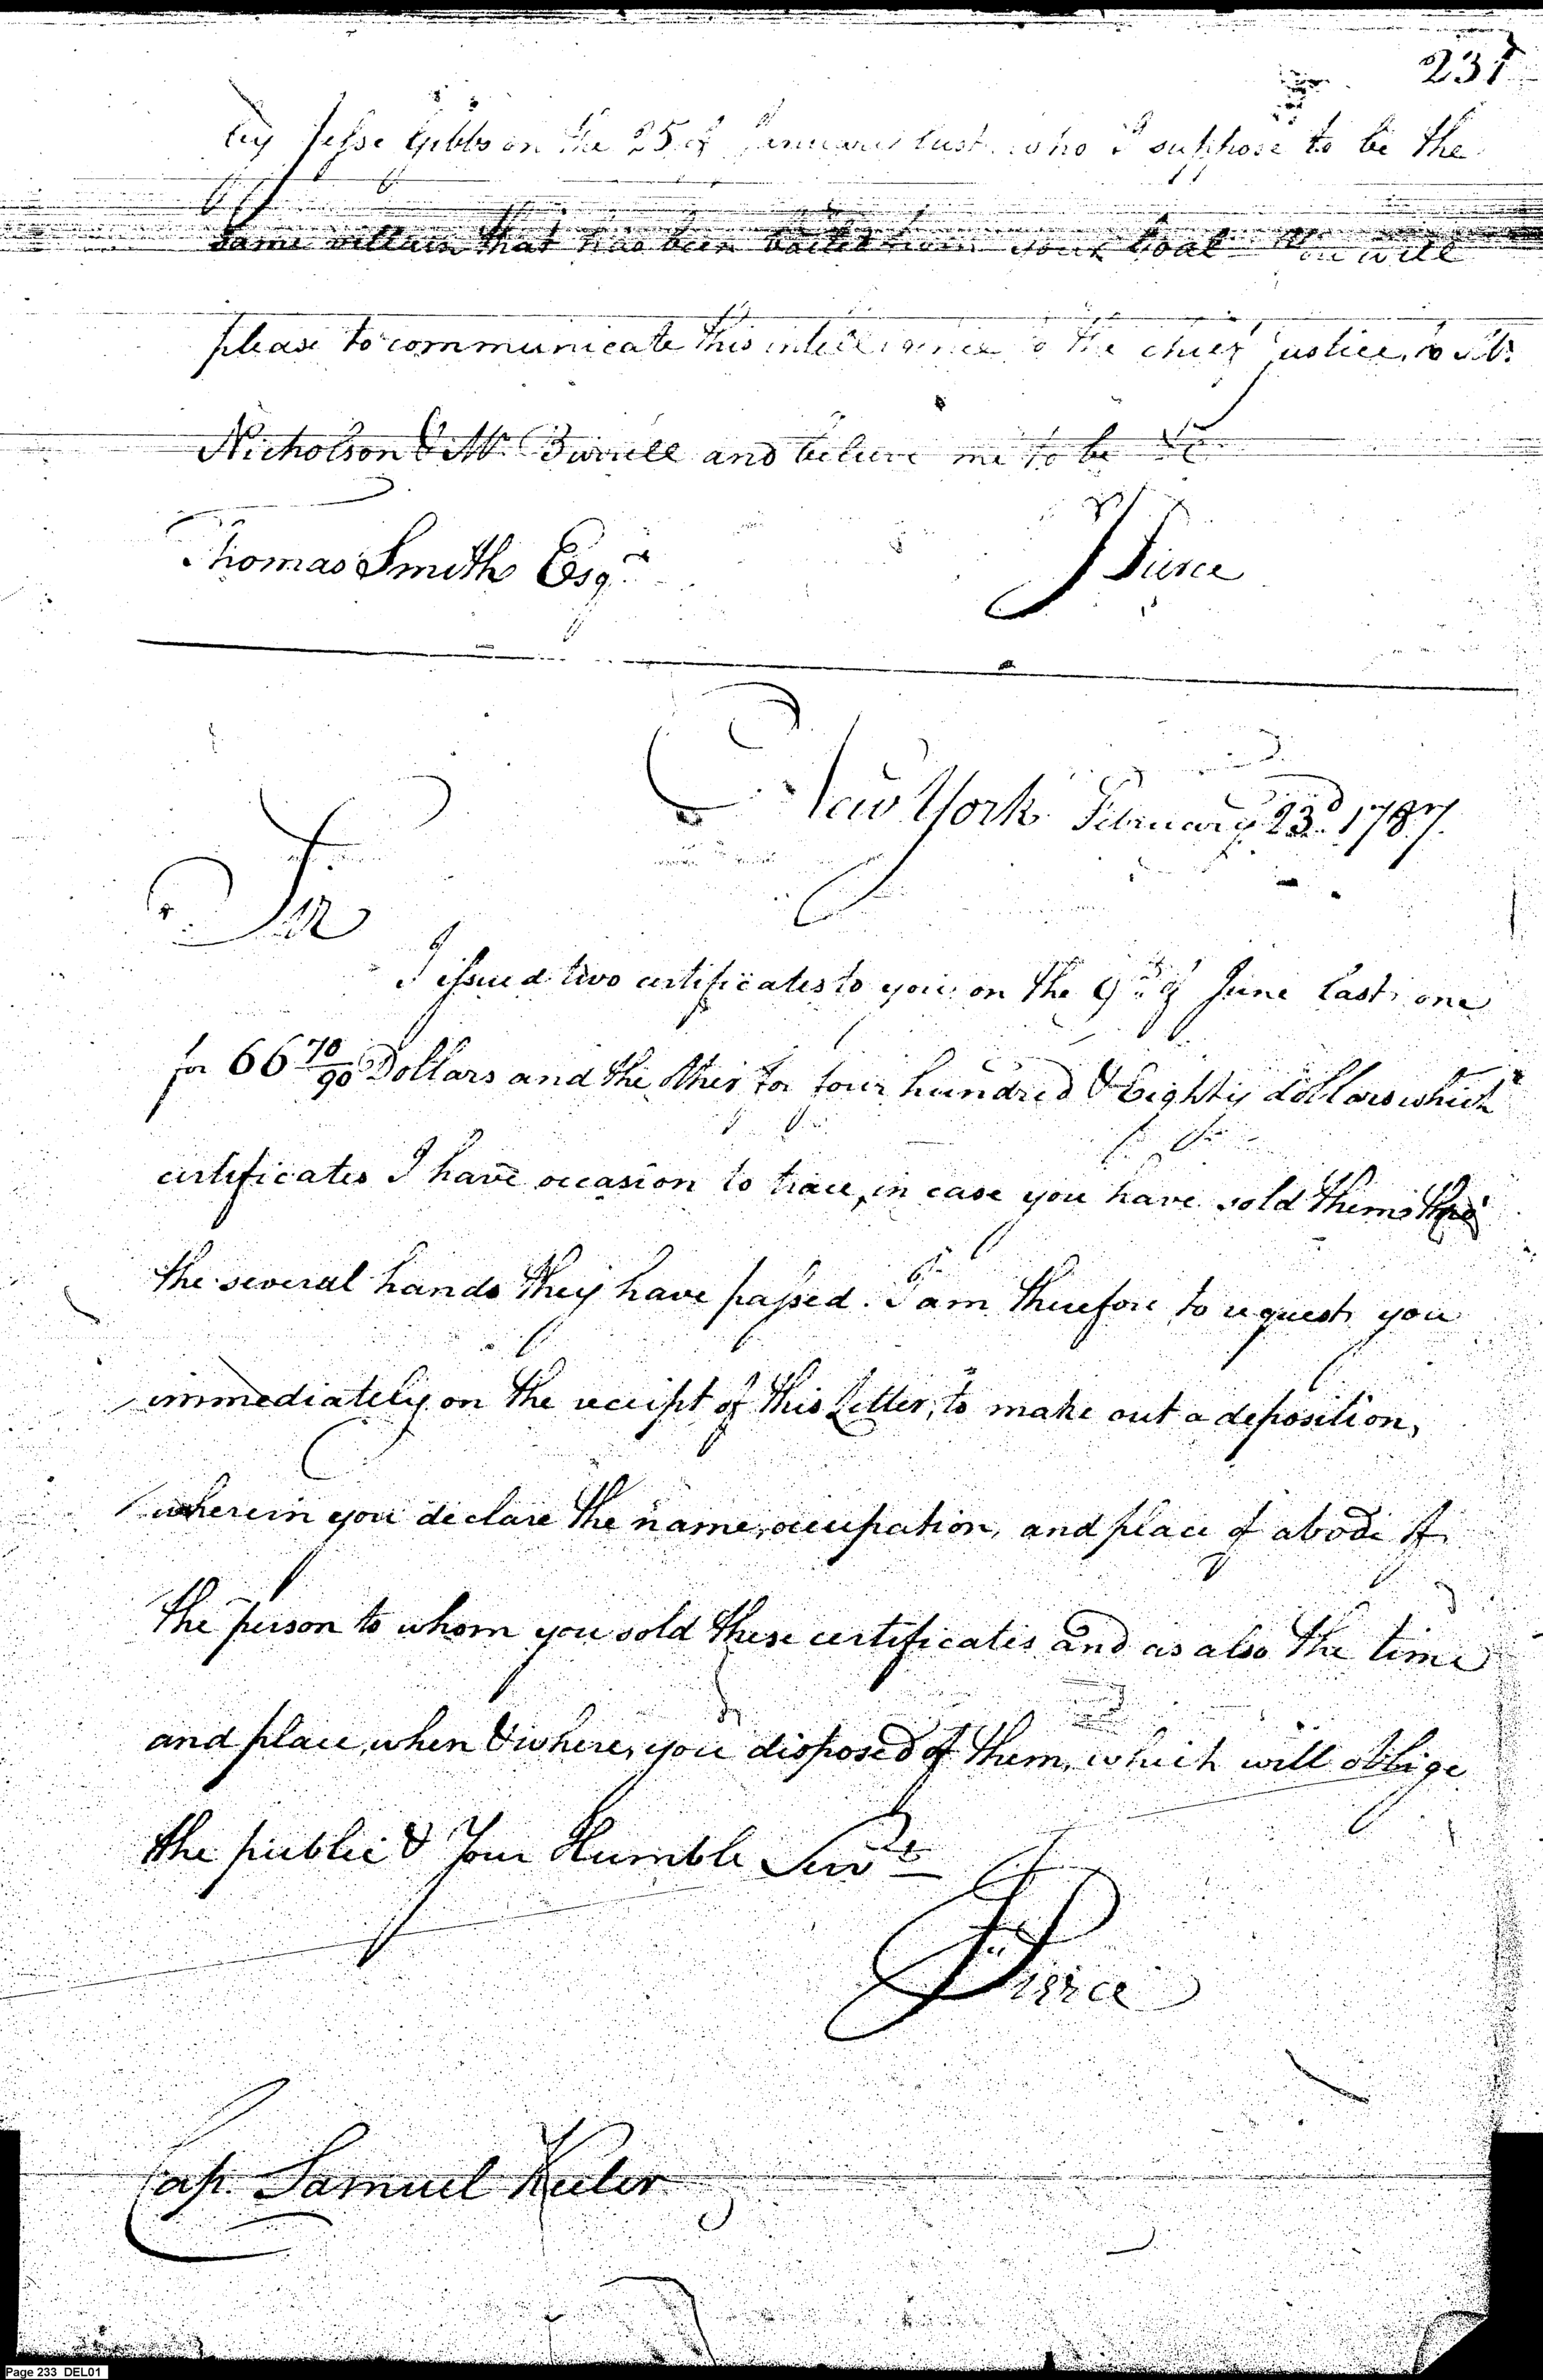 231
by Jesse Gibbs on the 25 of January last who I suppose to be the
same villain that has been bailed from your Goal You will
please to communicate this intelligence to the chief justice, to Mr.
Nicholson & Mr. Burrell and believe me to be &c
Thomas Smith Esqr.
J Pierce
New York February 23d. 1787.
Sir
I issued two certificates to you on the 9th of June last, one
for 66 70/90 Dollars and the other for four hundred & Eighty dollars which
certificates I have occasion to trace, in case you have sold them thro'
the several hands they have passed. I am therefore to request you
immediately on the receipt of this Letter, to make out a deposition,
wherein you declare the name, occupation, and place of abode of
the person to whom you sold these certificates and as also the time
and place, when & where, you disposed of them, which will oblige
the public & Your Humble Servt.
J Pierce
Cap. Samuel Keeler
Page 233 DEL01